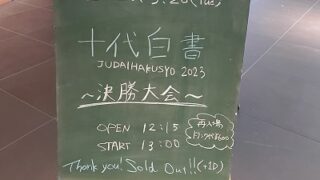 3/20(Tue)
十代白書
JUDAIHAKUSYO 2023
~決勝大会~
OPEN 12:15
START 13:00
再入場
ドリンク代¥600
Thank you! Sold Out!! (+1D)